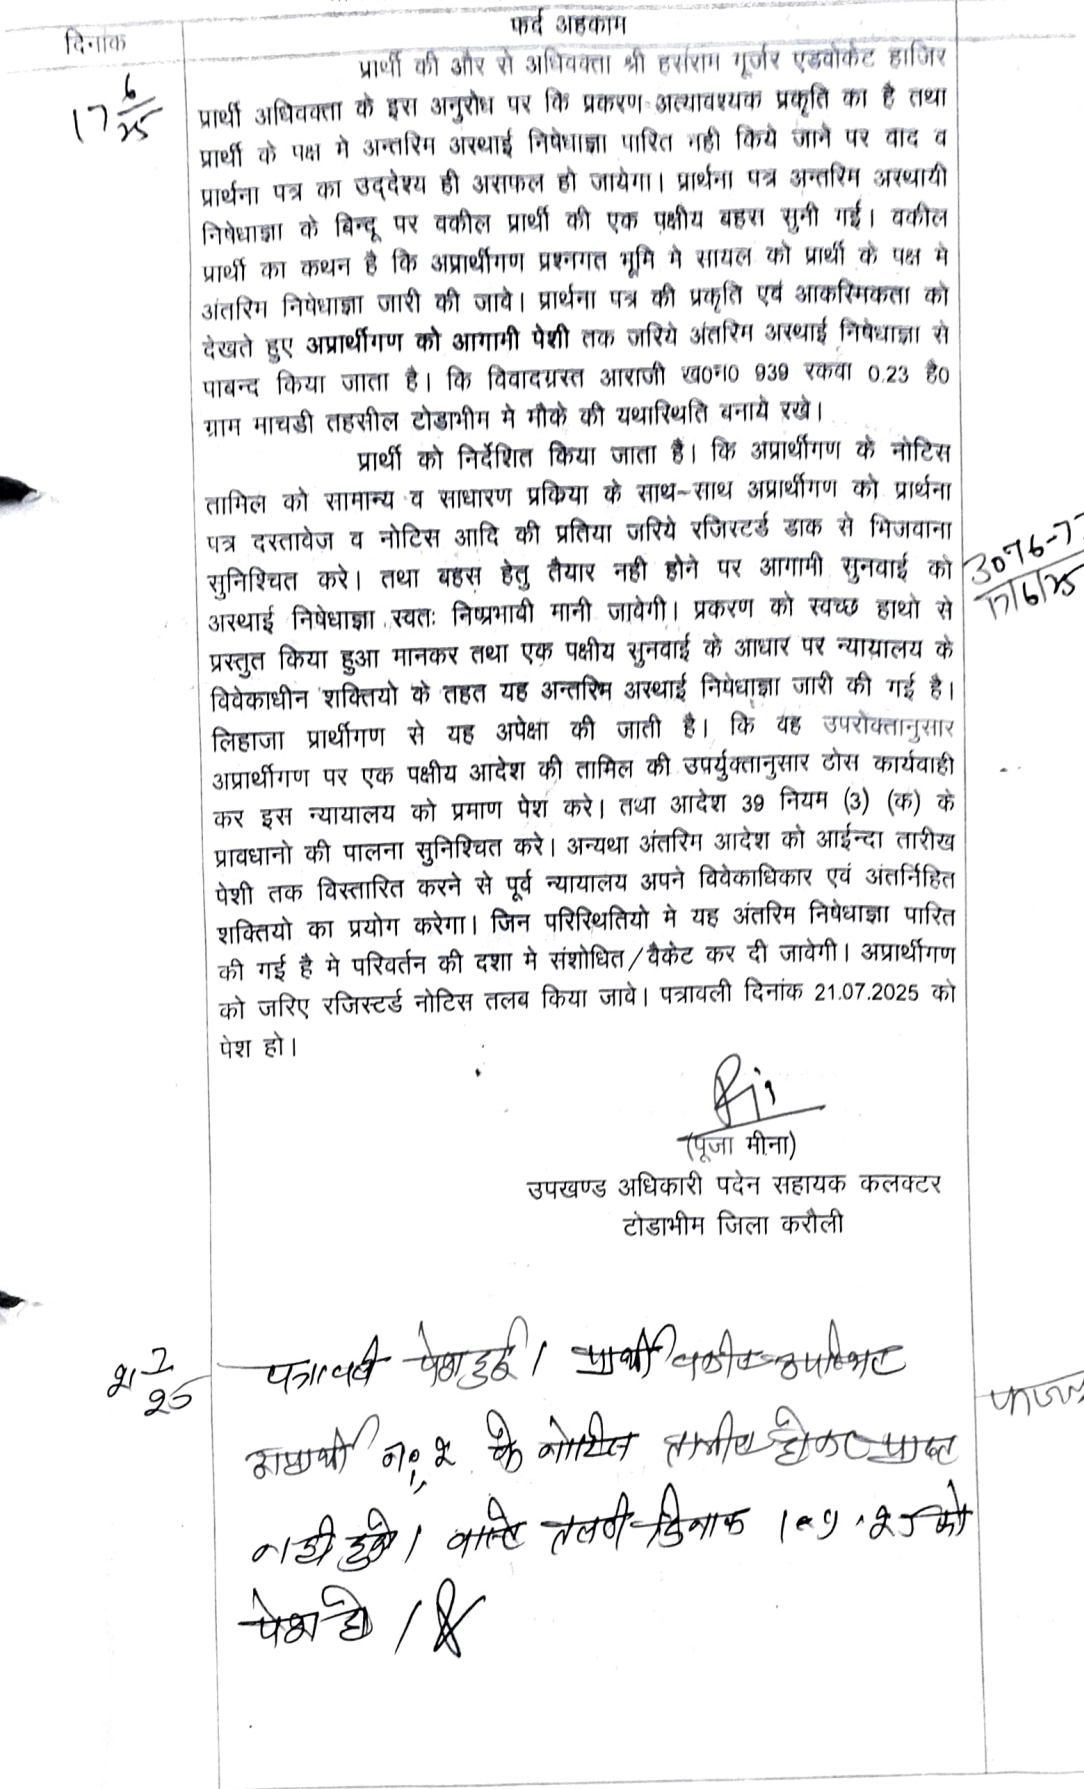 फर्द अहकाम
दिनांक
प्रार्थी की और से अधिवक्ता श्री हसंराम गूर्जर एडवोकेट हाजिर
17 6/25
प्रार्थी अधिवक्ता के इस अनुरोध पर कि प्रकरण अत्यावश्यक प्रकृति का है तथा
प्रार्थी के पक्ष मे अन्तरिम अस्थाई निषेधाज्ञा पारित नही किये जाने पर वाद व
प्रार्थना पत्र का उद्देश्य ही असफल हो जायेगा। प्रार्थना पत्र अन्तरिम अस्थायी
निषेधाज्ञा के बिन्दू पर वकील प्रार्थी की एक पक्षीय बहस सुनी गई। वकील
प्रार्थी का कथन है कि अप्रार्थीगण प्रश्नगत भूमि मे सायल को प्रार्थी के पक्ष मे
अंतरिम निषेधाज्ञा जारी की जावे। प्रार्थना पत्र की प्रकृति एवं आकस्मिकता को
देखते हुए अप्रार्थीगण को आगामी पेशी तक जरिये अंतरिम अस्थाई निषेधाज्ञा से
पाबन्द किया जाता है। कि विवादग्रस्त आराजी ख0न0 939 रकवा 0.23 है0
ग्राम माचडी तहसील टोडाभीम मे मौके की यथास्थिति बनाये रखे।
प्रार्थी को निर्देशित किया जाता है। कि अप्रार्थीगण के नोटिस
तामिल को सामान्य व साधारण प्रकिया के साथ-साथ अप्रार्थीगण को प्रार्थना
पत्र दस्तावेज व नोटिस आदि की प्रतिया जरिये रजिस्टर्ड डाक से भिजवाना
सुनिश्चित करे। तथा बहस हेतु तैयार नही होने पर आगामी सुनवाई को
3076-77
17/6/25
अस्थाई निषेधाज्ञा स्वतः निष्प्रभावी मानी जावेगी। प्रकरण को स्वच्छ हाथो से
प्रस्तुत किया हुआ मानकर तथा एक पक्षीय सुनवाई के आधार पर न्यायालय के
विवेकाधीन शक्तियो के तहत यह अन्तरिम अस्थाई निषेधाज्ञा जारी की गई है।
लिहाजा प्रार्थीगण से यह अपेक्षा की जाती है। कि वह उपरोक्तानुसार
अप्रार्थीगण पर एक पक्षीय आदेश की तामिल की उपर्युक्तानुसार ठोस कार्यवाही
कर इस न्यायालय को प्रमाण पेश करे। तथा आदेश 39 नियम (3) (क) के
प्रावधानो की पालना सुनिश्चित करे। अन्यथा अंतरिम आदेश को आईन्दा तारीख
पेशी तक विस्तारित करने से पूर्व न्यायालय अपने विवेकाधिकार एवं अंतर्निहित
शक्तियो का प्रयोग करेगा। जिन परिस्थितियो मे यह अंतरिम निषेधाज्ञा पारित
की गई है मे परिवर्तन की दशा मे संशोधित/वैकेट कर दी जावेगी। अप्रार्थीगण
को जरिए रजिस्टर्ड नोटिस तलब किया जावे। पत्रावली दिनांक 21.07.2025 को
पेश हो।
(पूजा मीना)
उपखण्ड अधिकारी पदेन सहायक कलक्टर
टोडाभीम जिला करौली
21 7/25
पत्रावली पेश हुई। प्रार्थी वकील उपस्थित
अप्रार्थी नं. 2 के नोटिस तामील होकर प्राप्त
नही हुये। वास्ते तलबी दिनांक 1.9.25 को
पेश हो।